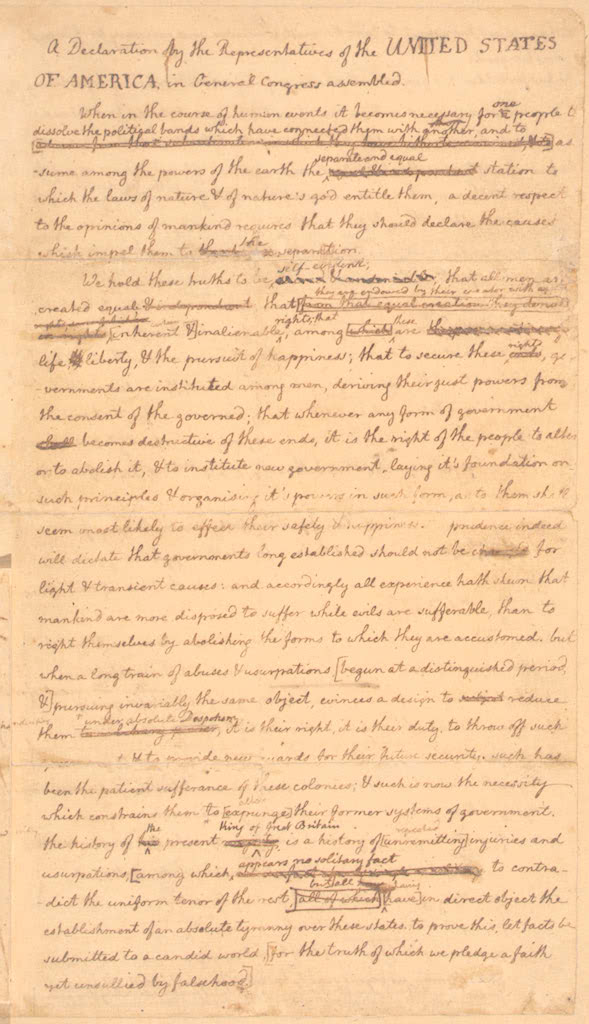 A Declaration by the Representatives of the UNITED STATES
OF AMERICA, in General Congress assembled.
When in the course of human events it becomes necessary for one people to
dissolve the political bands which have connected them with another, and to
as-
separate and equal
-sume among the powers of the earth the station to
which the laws of nature & of nature's god entitle them, a decent respect
to the opinions of mankind requires that they should declare the causes
which impel them to the separation.
self-evident;
We hold these truths to be that all men are
they are endowed by their creator with
created equal & independent, that [from that equal creation they derive
rights; that these
[inherent &] inalienable, among [which] are
rights
life & liberty, & the pursuit of happiness; that to secure these ends, go-
-vernments are instituted among men, deriving their just powers from
the consent of the governed; that whenever any form of government
shall becomes destructive of these ends, it is the right of the people to alter
or to abolish it, & to institute new government, laying it's foundation on
such principles & organising it's powers in such form, as to them shall
seem most likely to effect their safety & happiness. prudence indeed
will dictate that governments long established should not be changed for
light & transient causes: and accordingly all experience hath shewn that
mankind are more disposed to suffer while evils are sufferable, than to
right themselves by abolishing the forms to which they are accustomed. but
when a long train of abuses & usurpations [begun at a distinguished period,
&] pursuing invariably the same object, evinces a design to subject reduce
under absolute Despotism
them it is their right, it is their duty, to throw off such
& to provide new guards for their future security. such has
been the patient sufferance of these colonies; & such is now the necessity
alter
which constrains them to [expunge] their former systems of government.
the king of Great Britain repeated
the history of his present is a history of [unremitting] injuries and
appears no solitary fact
usurpations, [among which, to contra-
but all having
-dict the uniform tenor of the rest, [all of which] [have] in direct object the
establishment of an absolute tyranny over these states. to prove this, let facts be
submitted to a candid world, [for the truth of which we pledge a faith
yet unsullied by falsehood.]